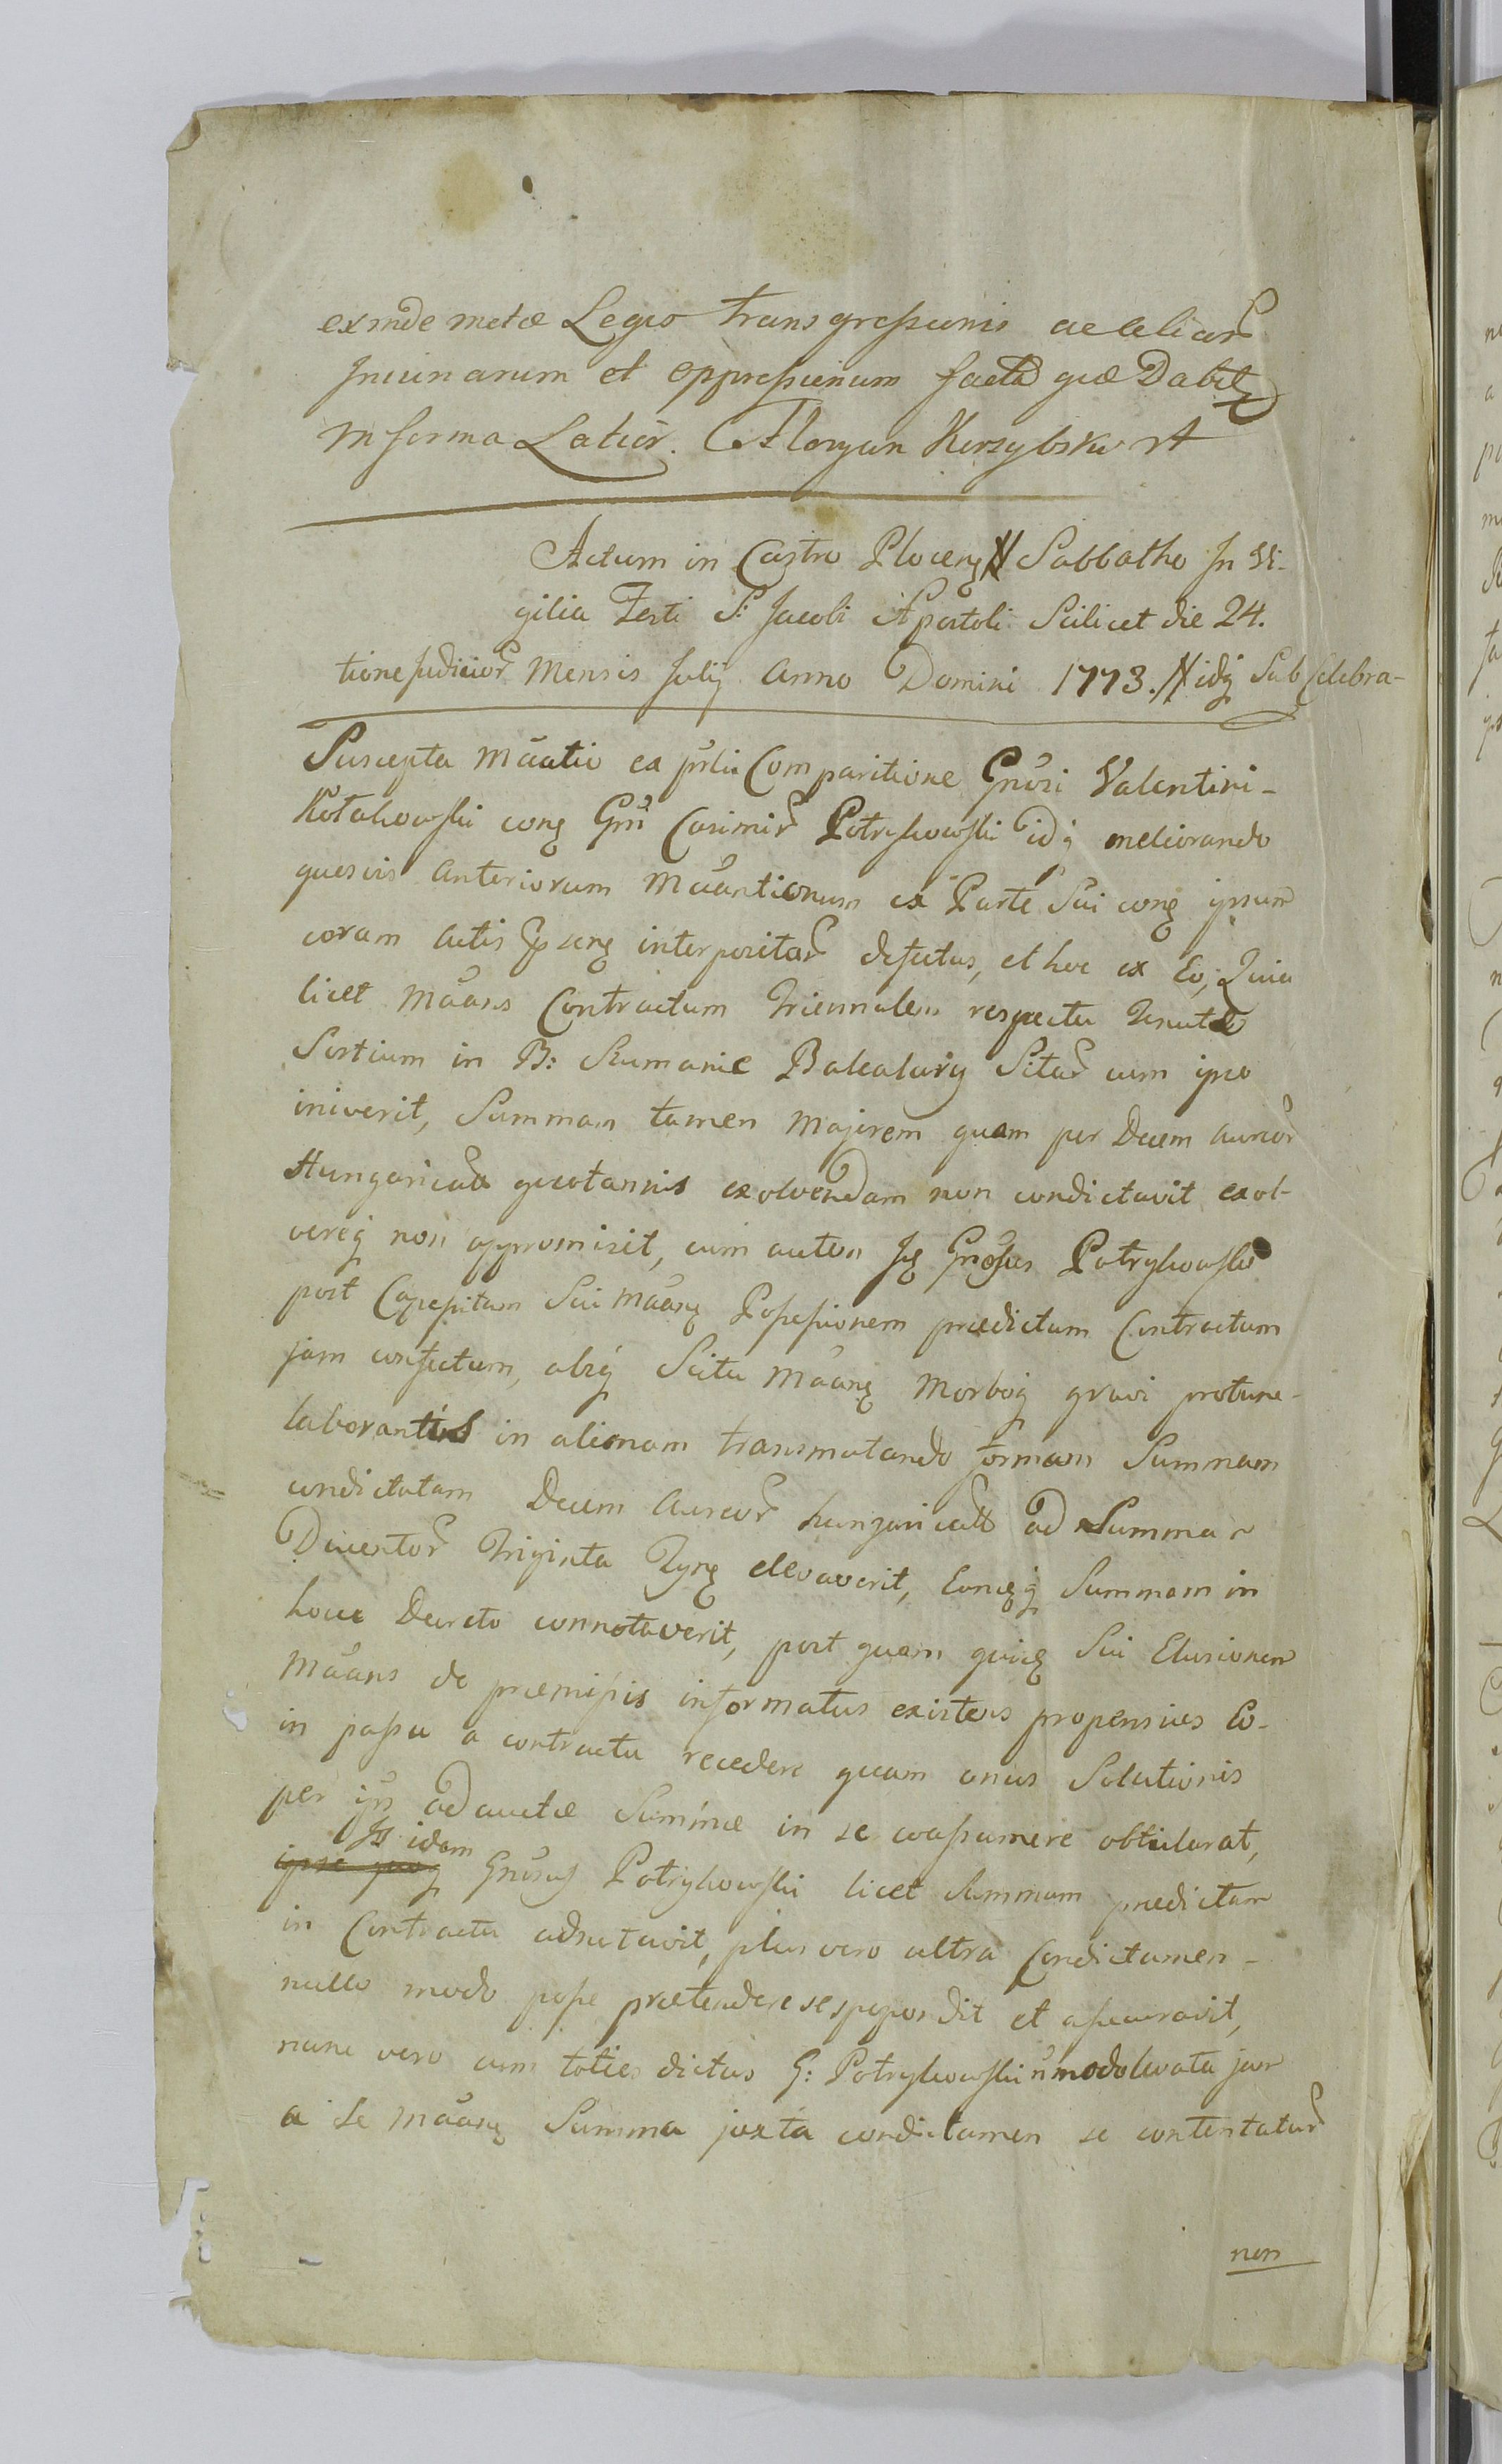 exinde metæ Legio transgressionis ac aliar
Iniuriarum et oppressionum facta quæ Dabit
in forma Latior. Floryan Korzybski
Actum in Castro Plocen Sabbatho In Vi-
gilia Festi S: Jacobi Apostoli Scilicet die 24.
tione Judicior Mensis Julij Anno Domini 1773. // idq Sub Celebra-
Suscepta Mäatio ex pñti Comparitione Gñosi Valentini
con Gñ Casimir Potrykowski idq meliorando
quosvis anteriorum Mäantionum ex Parte Sui con ipsum
coram actis interpositar defectus, et hoc ex Eo, Quia
licet Mäans Contractum Triennalem respectu Tenutæ
Sortium in B: Szumanie Bakalary Sitar cum ipso
iniverit, Summam tamen Majorem quam per Decem Aureor
Hungaricall quotannis exolvendam non condictavit exol-
vereq non appromisit, cum autem Gñosus Potrykowski
post Capessitam Sui Mäan Possessionem prædictum Contractum
jam confectum, absq Scitu Mäan Morboq gravi protunc
laborantis in alienam transmutando formam Summam
condictatam Decem Aureor hungaricall ad Summa
Ducentor Triginta Tyn elevaverit, Eamq Summam in
hocce Decreto connotaverit, post quam Sui Elusionem
Mäans de præmissis informatus existens propensius Eo
in passu a contractu recedere quam onus Solutionis
per ips adauctæ Summæ in se coassumere obtulerat,
idem
Gñosus Potrykowski licet Summam prædictam
in Contractu adnotavit, plus vero ultra Condictamen
nullo modo posse prætendere se spopondit et assecuravit,
nunc vero cum toties dictus G: Potrykowski ñ modo levata jam
a Se Mäan Summa juxta condictamen se contentatur
non